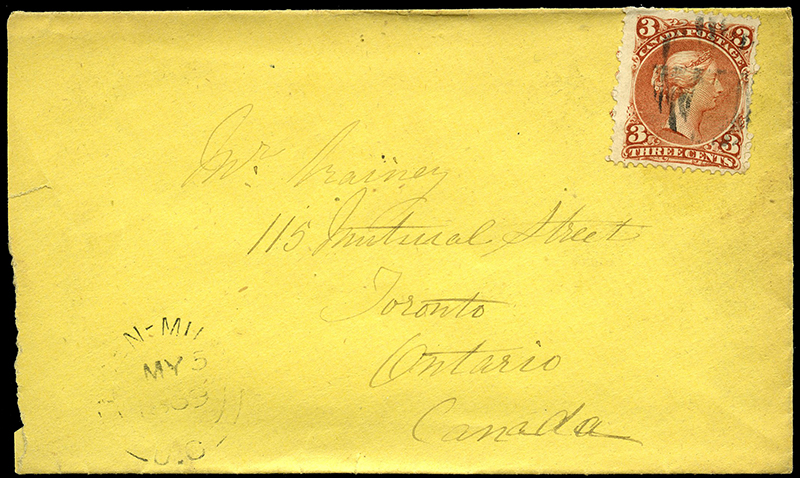 3 CANADA POSTAGE 3
3 THREE CENTS 3
Mr.
115 Mutual Street
Toronto
Ontario
Canada
MY 5
U.C